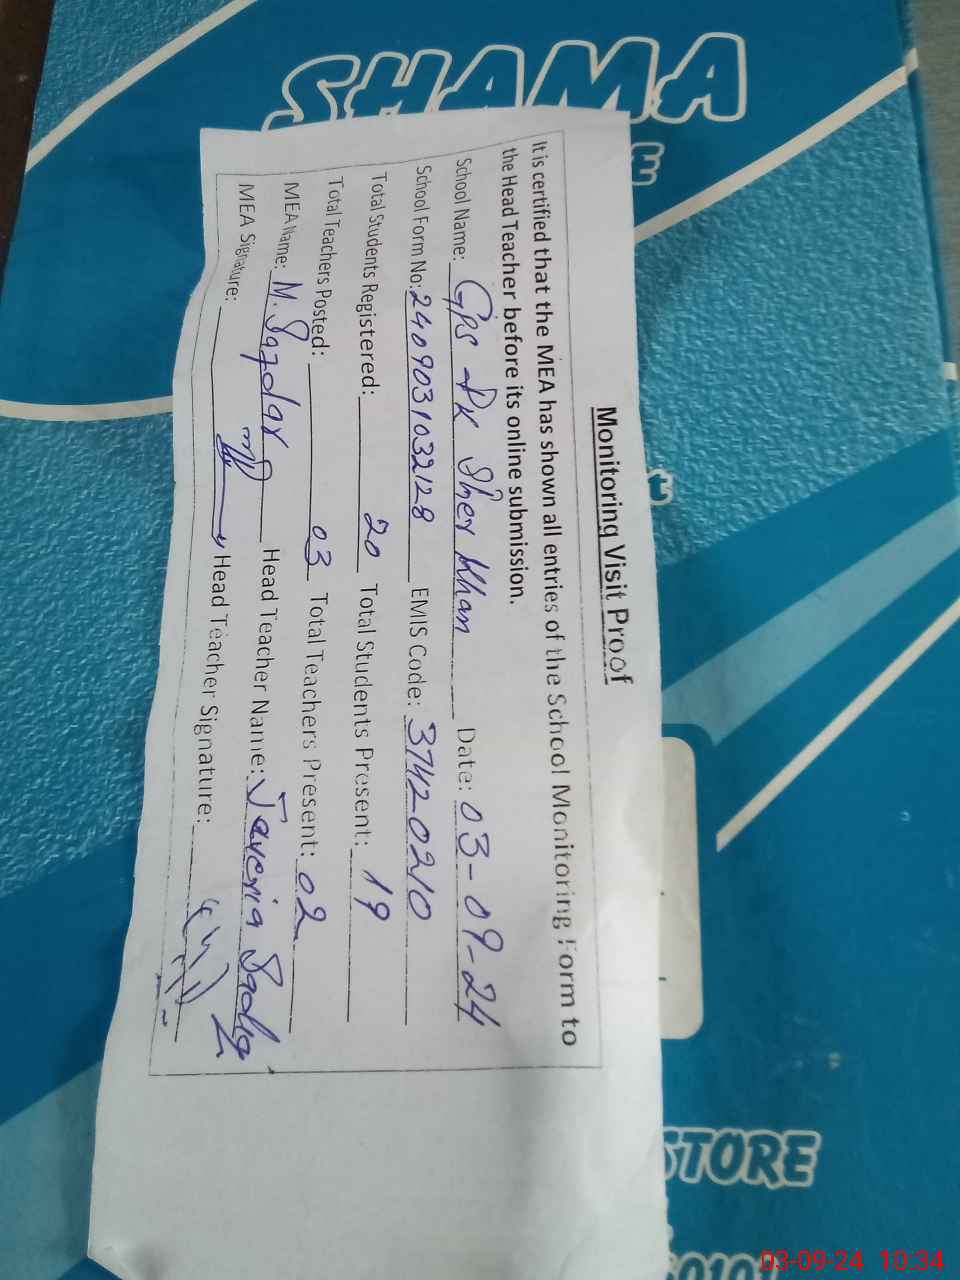 SHAMA
Monitoring Visit Proof
It is certified that the MEA has shown all entries of the School Monitoring Form to
the Head Teacher before its online submission.
School Name: Gps Dk Sher Khan Date: 03-09-24
School Form No: 2409031032128 EMIS Code: 37420210
Total Students Registered: 20 Total Students Present: 19
Total Teachers Posted: 03 Total Teachers Present: 02
MEA Name: M. Safdar Head Teacher Name: Javeria Sadiq
MEA Signature: Head Teacher Signature:
STORE
03-09-24 10:34